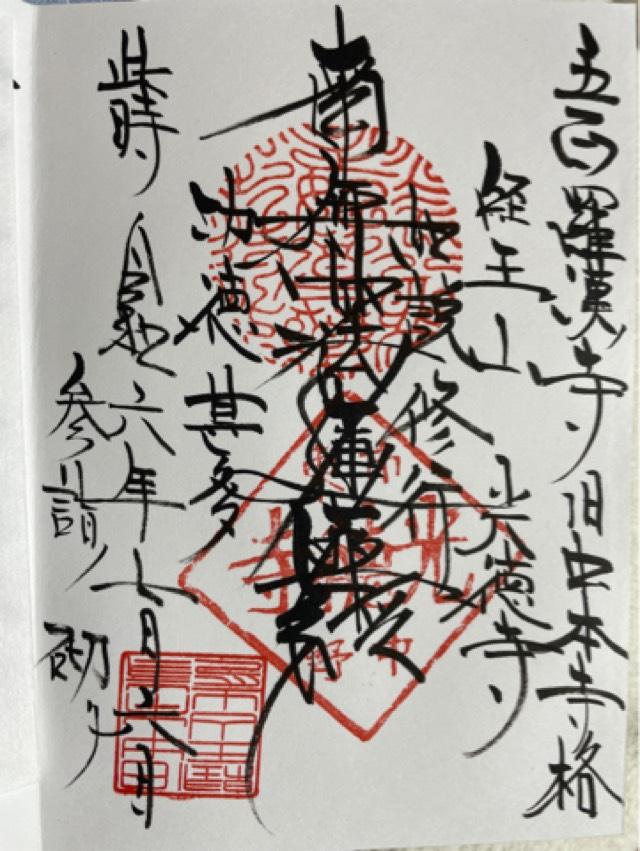 五百羅漢寺 旧中本寺格
経王山 光徳寺
如説修行
南無妙法蓮華経
功徳甚多
此時 令和六年七月六日
参詣 砌
光徳寺
中野